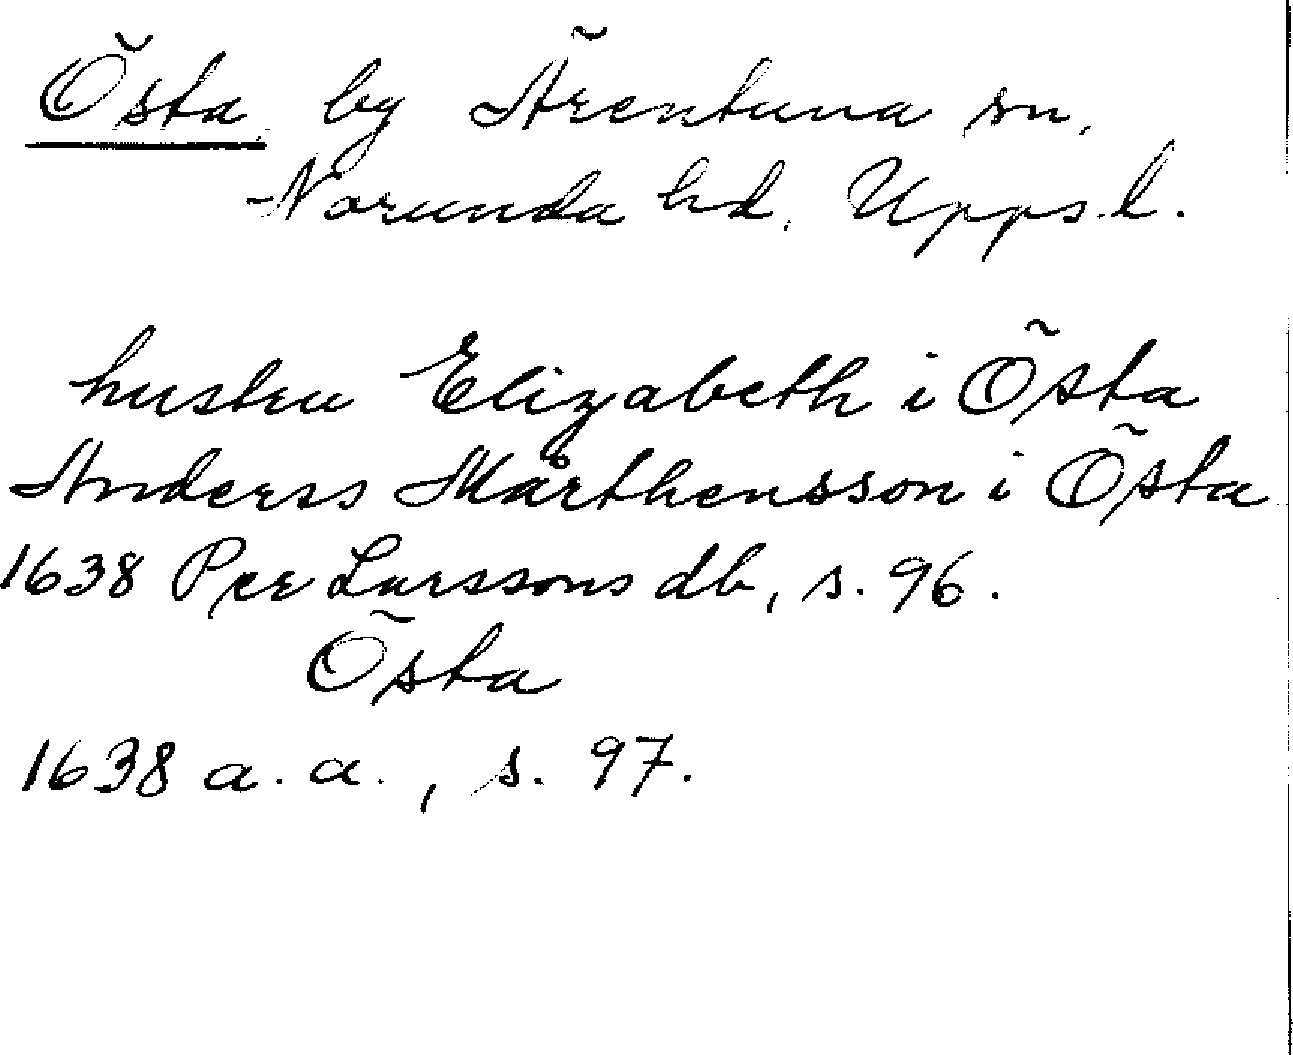 Östa by Ärentuna sn.
Norunda hd. Upps. l.
hustru Elizabeth i Östa
Anderss Mårthensson i Östa
1638 Per Larssons db, s. 96.
Östa
1638 a. a., s. 97.